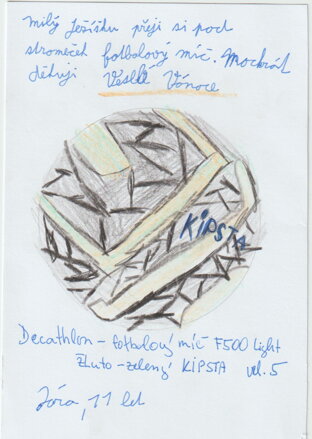 milý Ježíšku přeji si pod
stromeček fotbalový míč. Mockrát
děkuji Veselé Vánoce
KIPSTA
Decathlon - fotbalový míč F500 Light
žluto-zelený KIPSTA vel. 5
Jára, 11 let